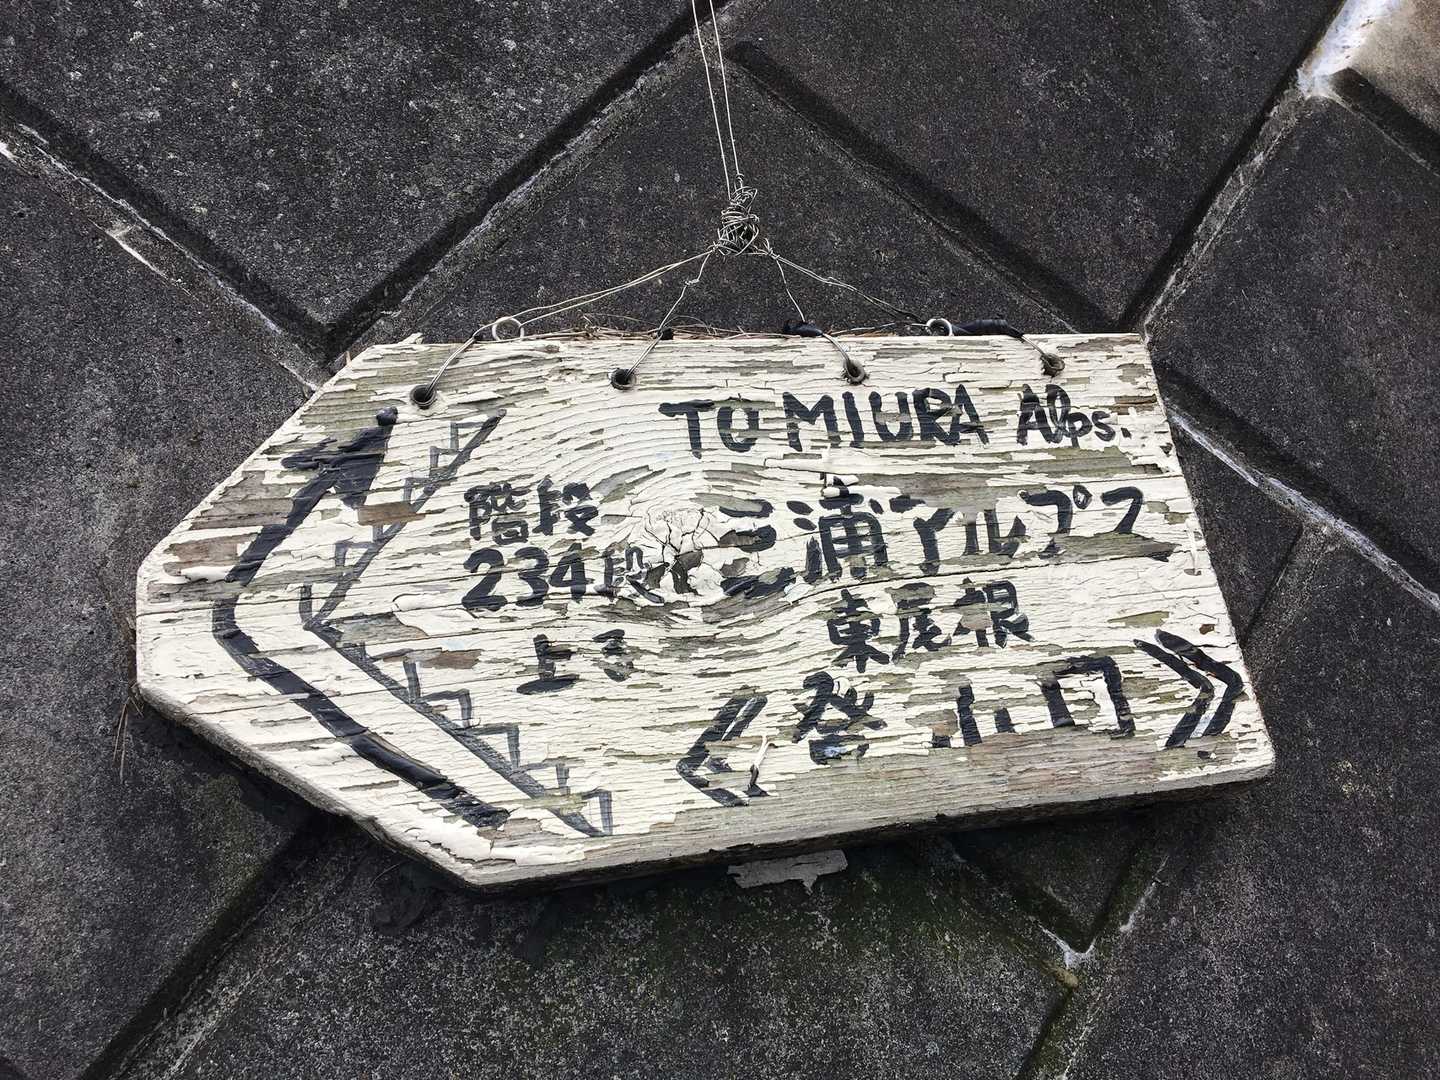 TO MIURA Alps.
三浦アルプス
東尾根
《 登山口 》
階段
234段
上る